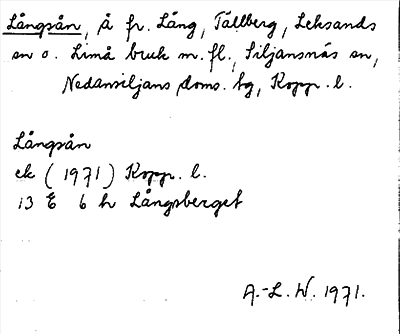 Långsån, å fr. Lång, Tällberg, Leksands
sn o. Limå bruk m. fl., Siljansnäs sn,
Nedansiljans doms. hg, Kopp. l.
Långsån
ek (1971) Kopp. l.
13 E 6 h Långsberget
A.-L. W. 1971.